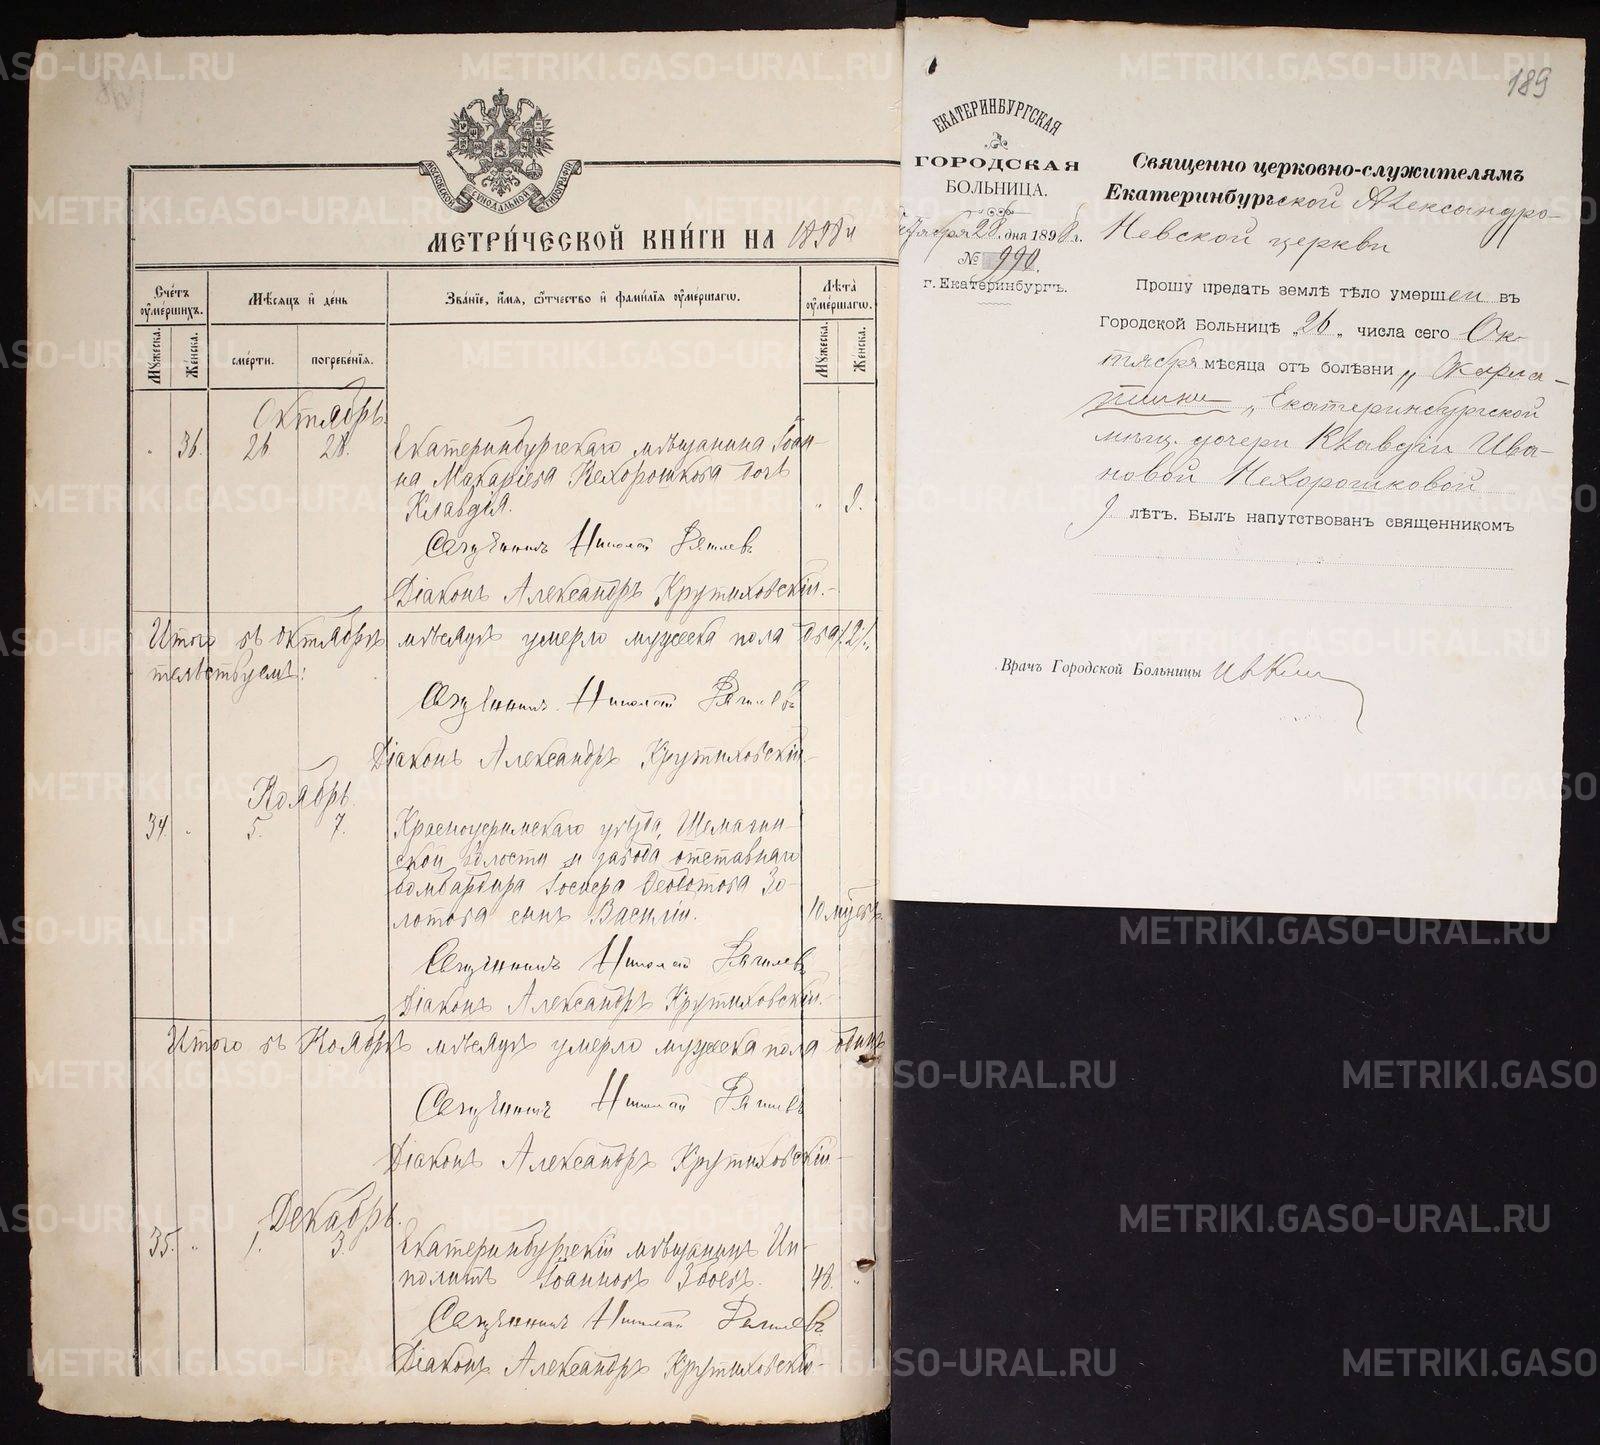 МЕТРИ́ЧЕСКОЙ КНИ́ГИ НА 1898 й
Сче́тъ ѹ҆ме́ршихъ.
Мѣ́сяцъ и҆ де́нь
Зва́нїе, и҆́мѧ, ѻ҆́тчество и҆ фами́лїѧ ѹ҆ме́ршагѡ.
Лѣ́та ѹ҆ме́ршагѡ.
Мꙋ́жеска.
Же́нска.
сме́рти.
погребе́нїѧ.
Мꙋ́жеска.
Же́нска.
Октябрь.
36. 26 28. Екатеринбургскаго мѣщанина Іоан-
на Макаріева Нехорошкова дочь
Клавдія. 9.
Священникъ Николай
Діаконъ Александръ Крутиховскій.
Итого въ октябрѣ мѣсяцѣ умерло мужеска пола два /2/,
Священникъ Николай
Діаконъ Александръ Крутиховскій.
Ноябрь.
34. 5. 7. Красноуфимскаго уѣзда, Шемахин-
ской волости и завода отставнаго
бомбардира Іосифа Федотова Зо-
лотова сынъ Василій. 10 мѣс.
Священникъ Николай
Діаконъ Александръ Крутиховскій.
Итого въ Ноябрѣ мѣсяцѣ умерло мужеска пола одинъ
Священникъ Николай
Діаконъ Александръ Крутиховскій
Декабрь.
35. 1. 3. Екатеринбургскій мѣщанинъ Ип-
политъ Іоанновъ 48.
Священникъ Николай
Діаконъ Александръ Крутиховскій
189
ЕКАТЕРИНБУРГСКАЯ
ГОРОДСКАЯ
БОЛЬНИЦА.
Октября 28 дня 1898 г.
№ 990.
г. Екатеринбургъ.
Священно церковно-служителямъ
Екатеринбургской Александро-
Невской церкви
Прошу предать землѣ тѣло умершей въ
Городской Больницѣ „26„ числа сего Ок-
тября мѣсяца отъ болѣзни „Скарла-
тины„ Екатеринбургской
мѣщ. дочери Клавдіи Ива-
новой Нехорошковой
9 лѣтъ. Былъ напутствованъ священникомъ
Врачъ Городской Больницы
METRIKI.GASO-URAL.RU